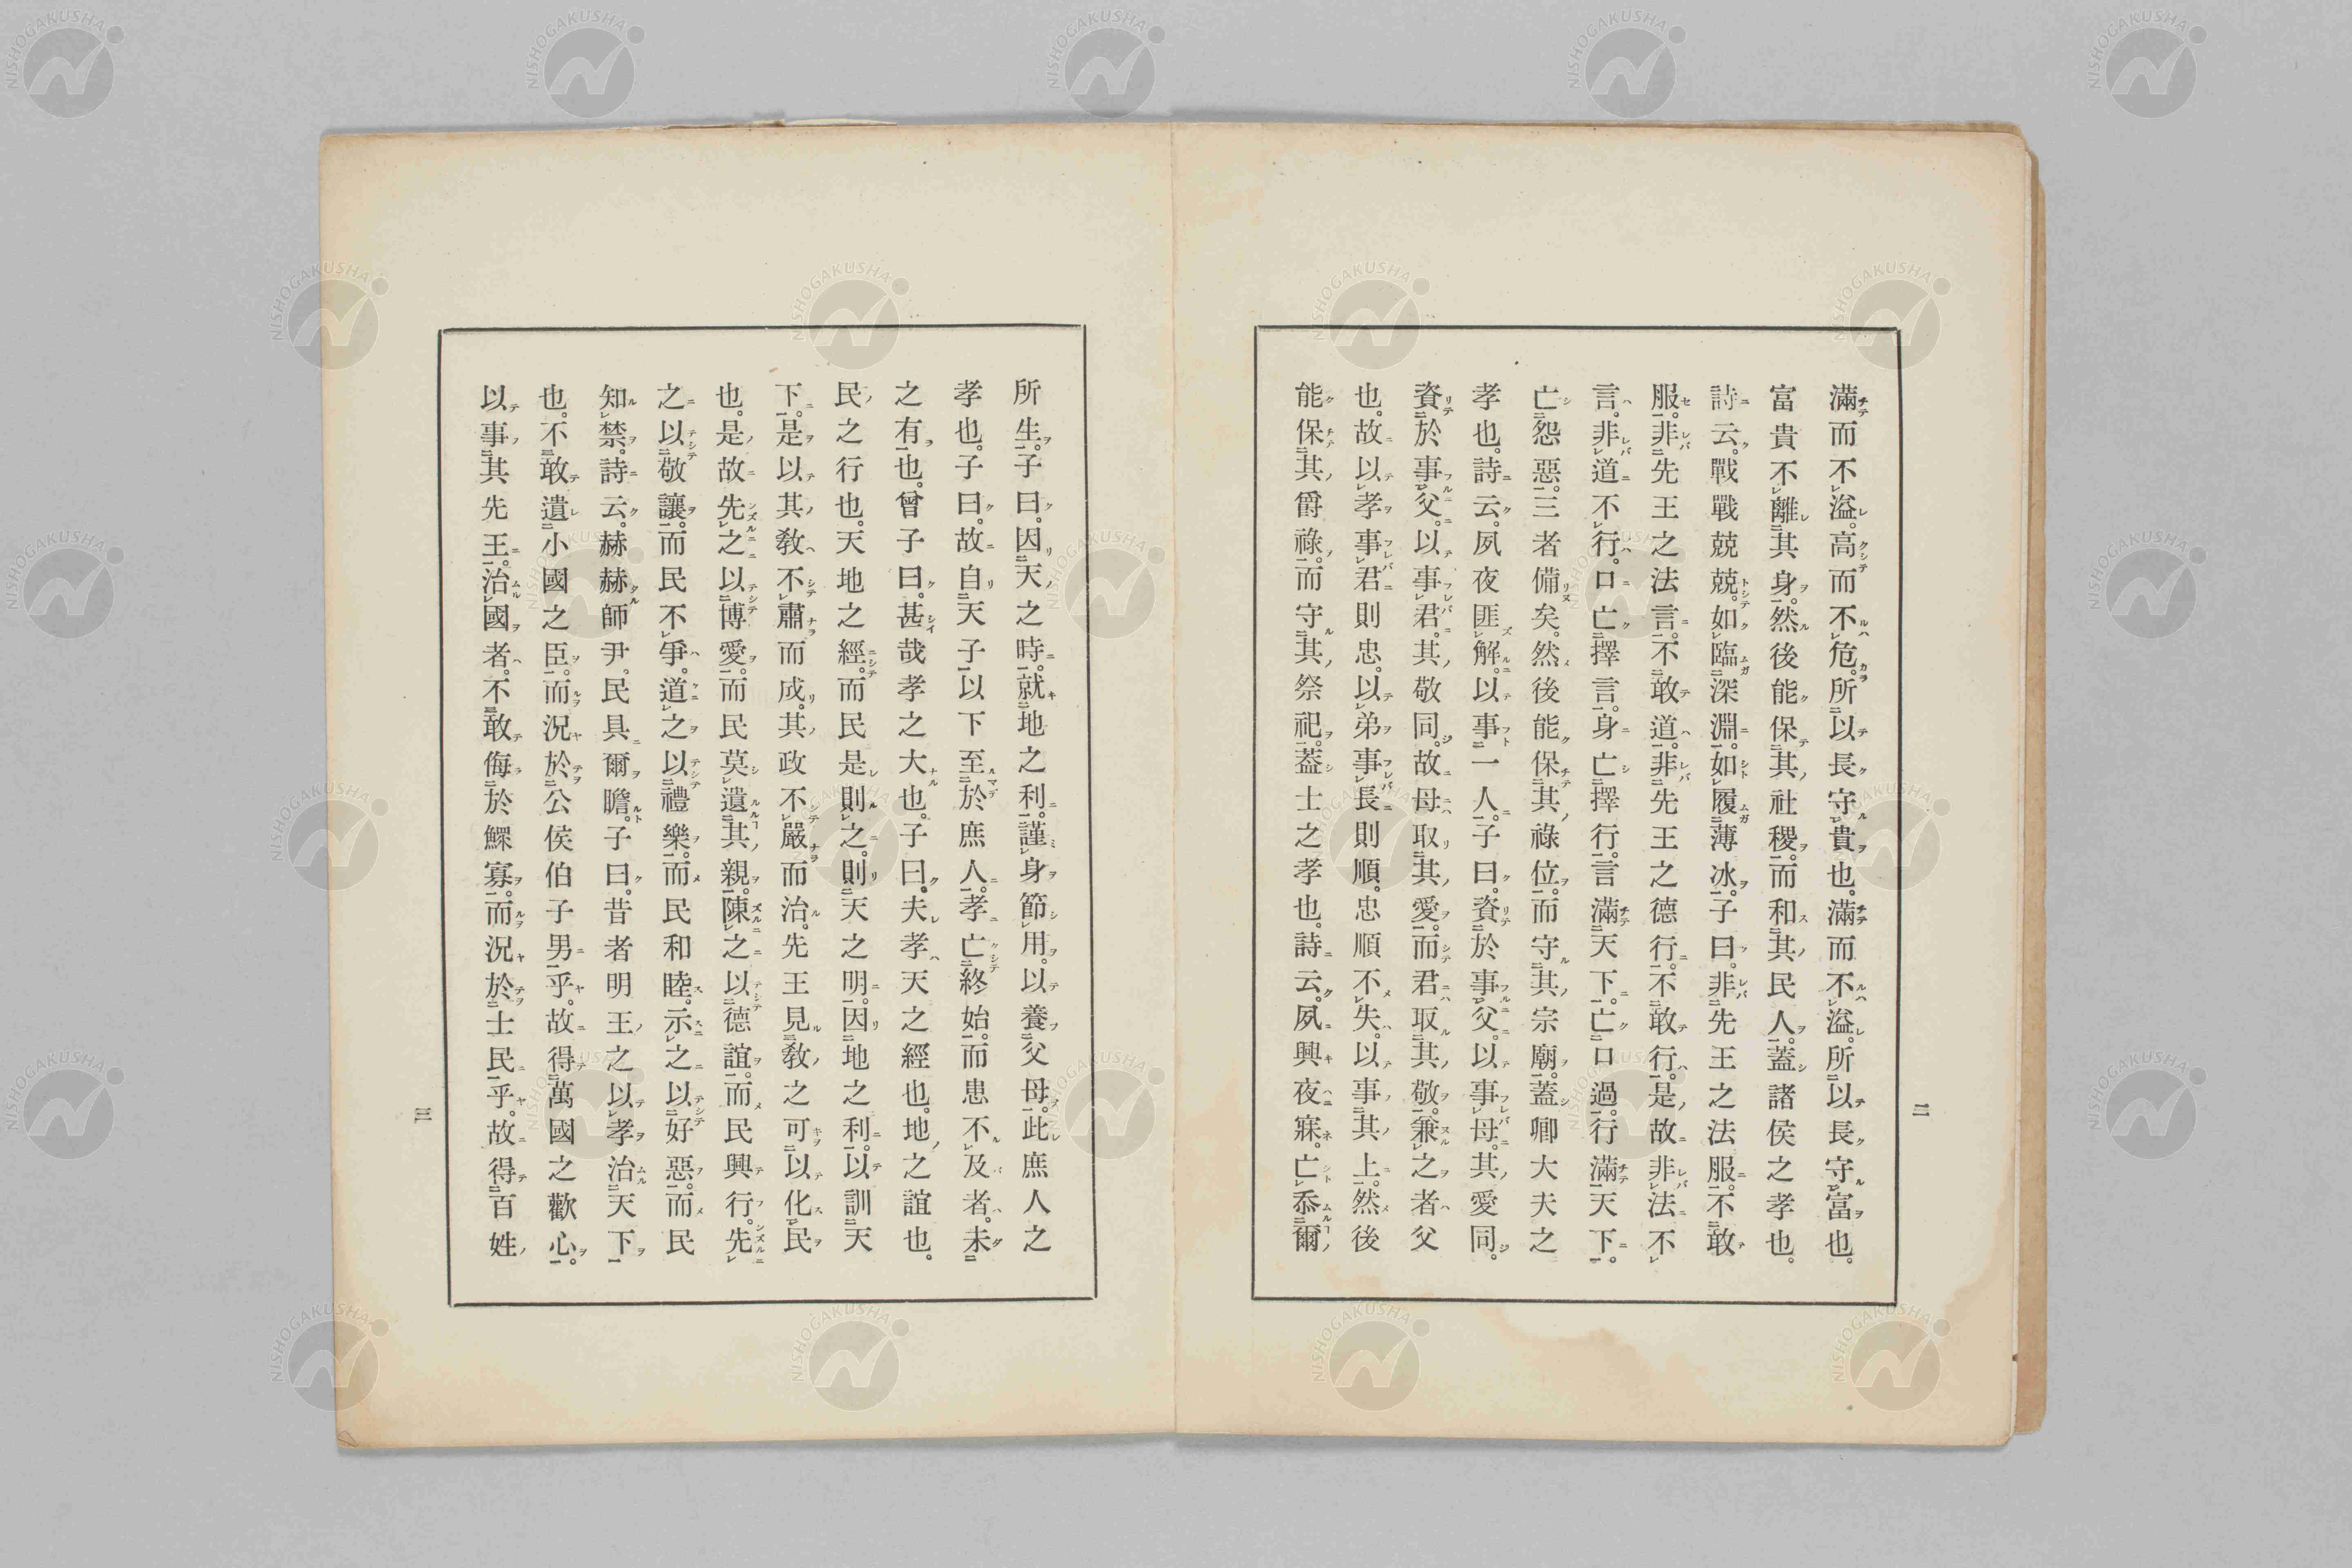 滿而不溢。高而不危。所以長守貴也。滿而不溢。所以長守富也。
富貴不離其身。然後能保其社稷。而和其民人。蓋諸侯之孝也。
詩云。戰戰兢兢。如臨深淵。如履薄冰。子曰。非先王之法服。不敢
服。非先王之法言。不敢道。非先王之德行。不敢行。是故非法不
言。非道不行。口亡擇言。身亡擇行。言滿天下。亡口過。行滿天下。
亡怨惡。三者備矣。然後能保其祿位。而守其宗廟。蓋卿大夫之
孝也。詩云。夙夜匪解。以事一人。子曰。資於事父。以事母。其愛同。
資於事父。以事君。其敬同。故母取其愛。而君取其敬。兼之者父
也。故以孝事君則忠。以弟事長則順。忠順不失。以事其上。然後
能保其爵祿。而守其祭祀。蓋士之孝也。詩云。夙興夜寐。亡忝爾
二
所生。子曰。因天之時。就地之利。謹身節用。以養父母。此庶人之
孝也。子曰。故自天子以下至於庶人。孝亡終始。而患不及者。未
之有也。曾子曰。甚哉孝之大也。子曰。夫孝天之經也。地之誼也。
民之行也。天地之經。而民是則之。則天之明。因地之利。以訓天
下。是以其敎不肅而成。其政不嚴而治。先王見敎之可以化民
也。是故先之以博愛。而民莫遺其親。陳之以德誼。而民興行。先
之以敬讓。而民不爭。道之以禮樂。而民和睦。示之以好惡。而民
知禁。詩云。赫赫師尹。民具爾瞻。子曰。昔者明王之以孝治天下
也。不敢遺小國之臣。而況於公侯伯子男乎。故得萬國之歡心。
以事其先王。治國者。不敢侮於鰥寡。而況於士民乎。故得百姓
三
NISHOGAKUSHA